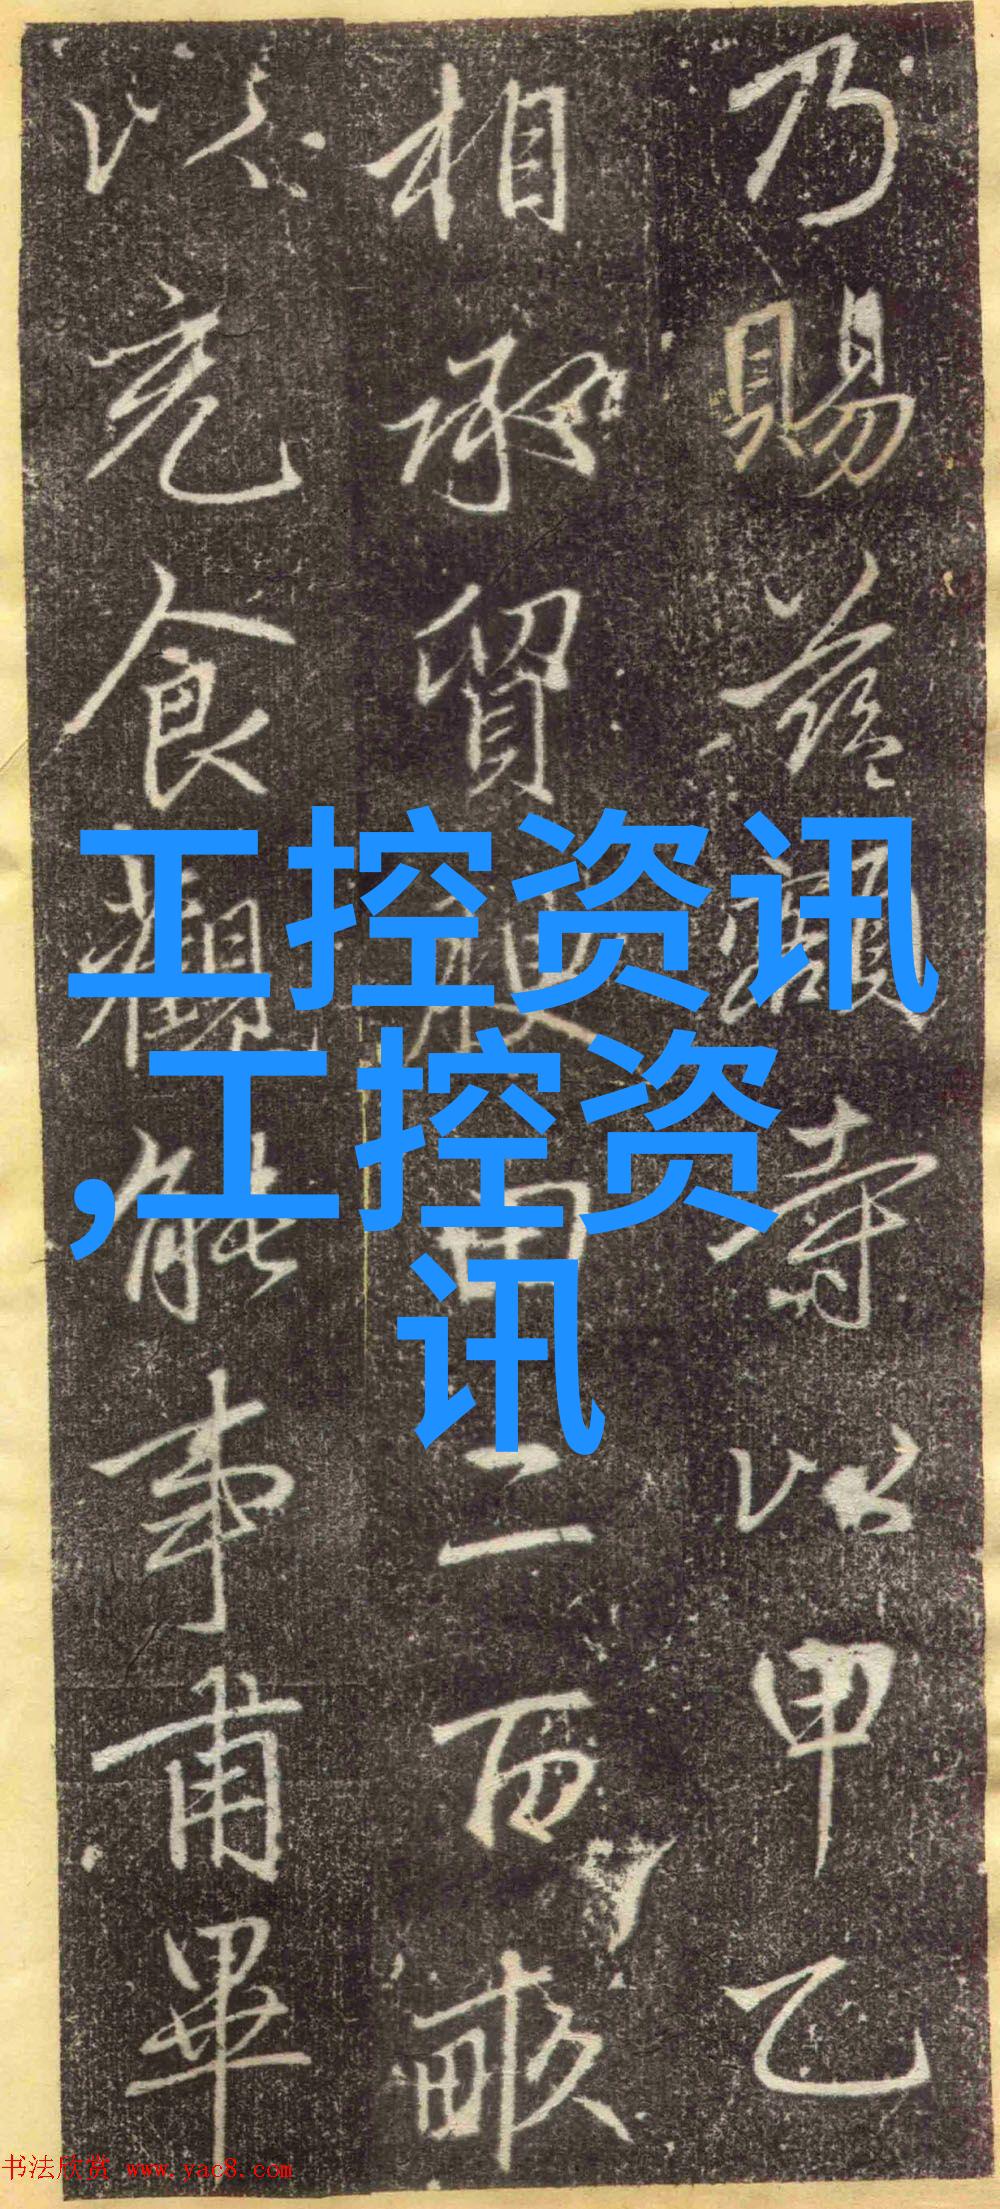 乃賜額寺以甲乙
相承貿田二百畝
以充食觀能事甫畢
工控资讯
,工控资
讯
书法欣赏 www.yac8.com